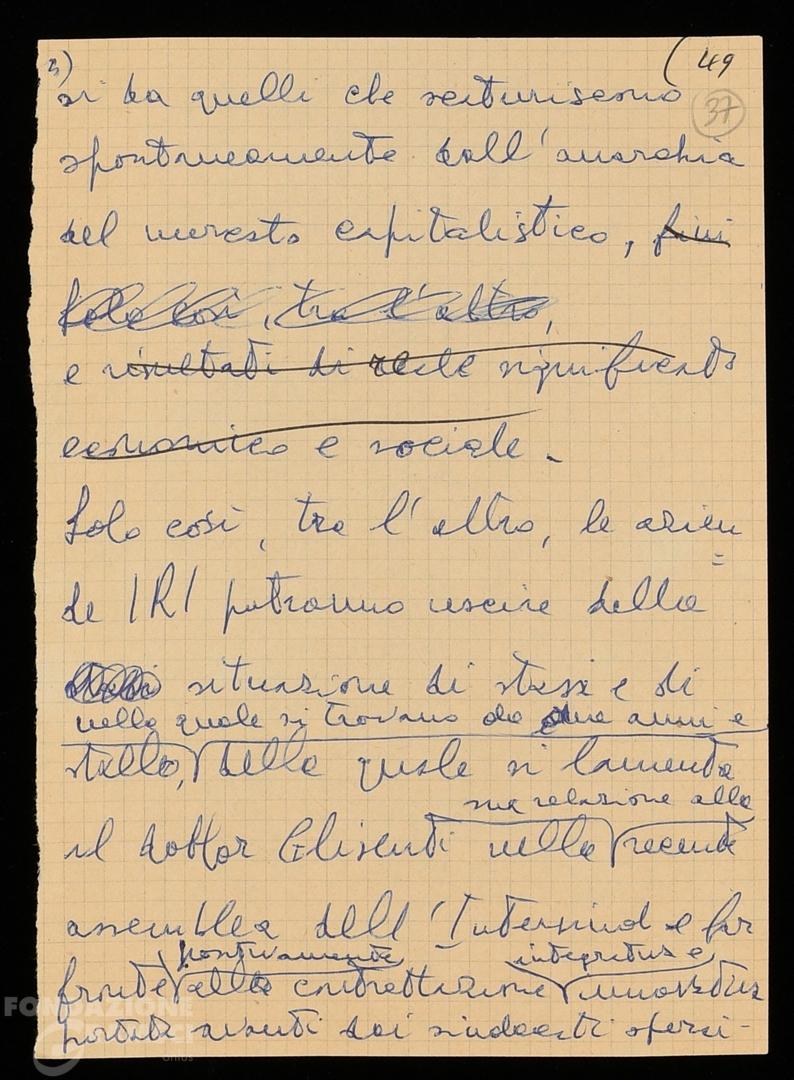 3) (49
37
si da quelli che scaturiscono
spontaneamente dall'anarchia
del mercato capitalistico, fini
Solo così, tra l'altro,
e risultati di reale significato
economico e sociale.
Solo così, tra l'altro, le azien
=
de IRI potranno uscire dalla
situazione di stasi e di
nella quale si trovano da due anni e
stallo, della quale si lamenta
sua relazione alla
il dottor Glisenti nella recente
assemblea dell'Intersind e far
positivamente integrativa e
fronte alla contrattazione innovativa
portata avanti dai sindacati operai-
FONDAZIONE